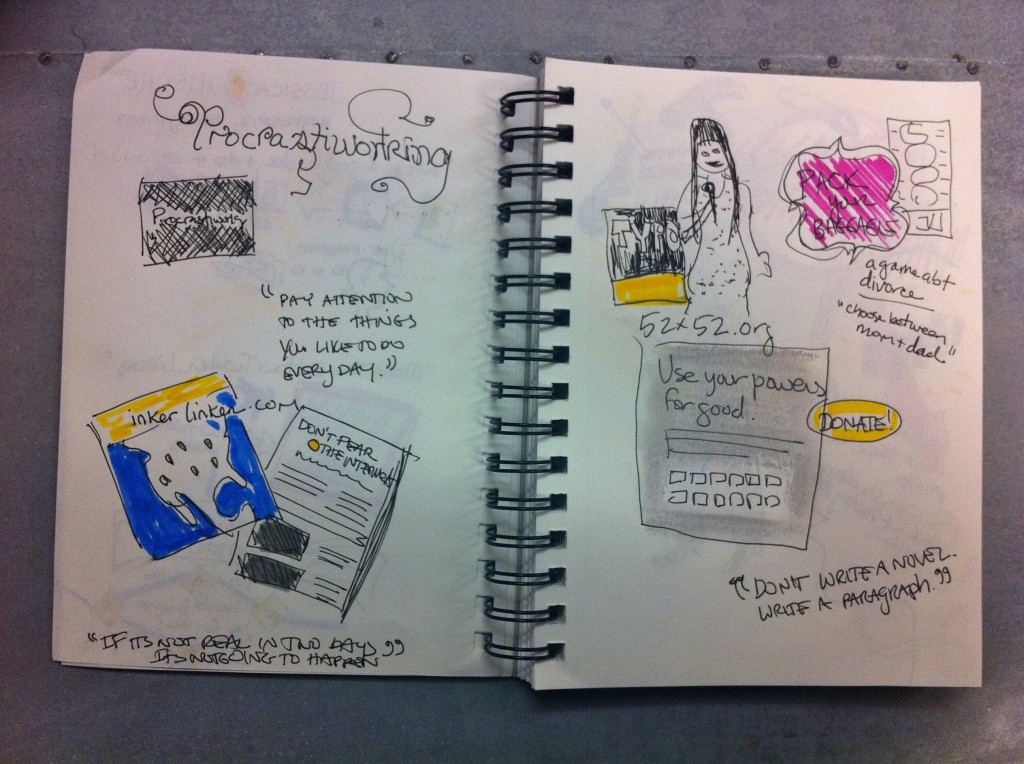 Procrastiworking
Procrastiworking
"PAY ATTENTION
TO THE THINGS
YOU LIKE TO DO
EVERY DAY."
inker linker.com
DON'T FEAR
THE INTERNET
"IF ITS NOT REAL IN TWO DAYS"
ITS NOT GOING TO HAPPEN
TYPO
PACK
your
BAGGAGE
a game abt
divorce
"choose between
mom + dad"
52x52.org
Use your powers
for good.
DONATE!
"DON'T WRITE A NOVEL.
WRITE A PARAGRAPH."